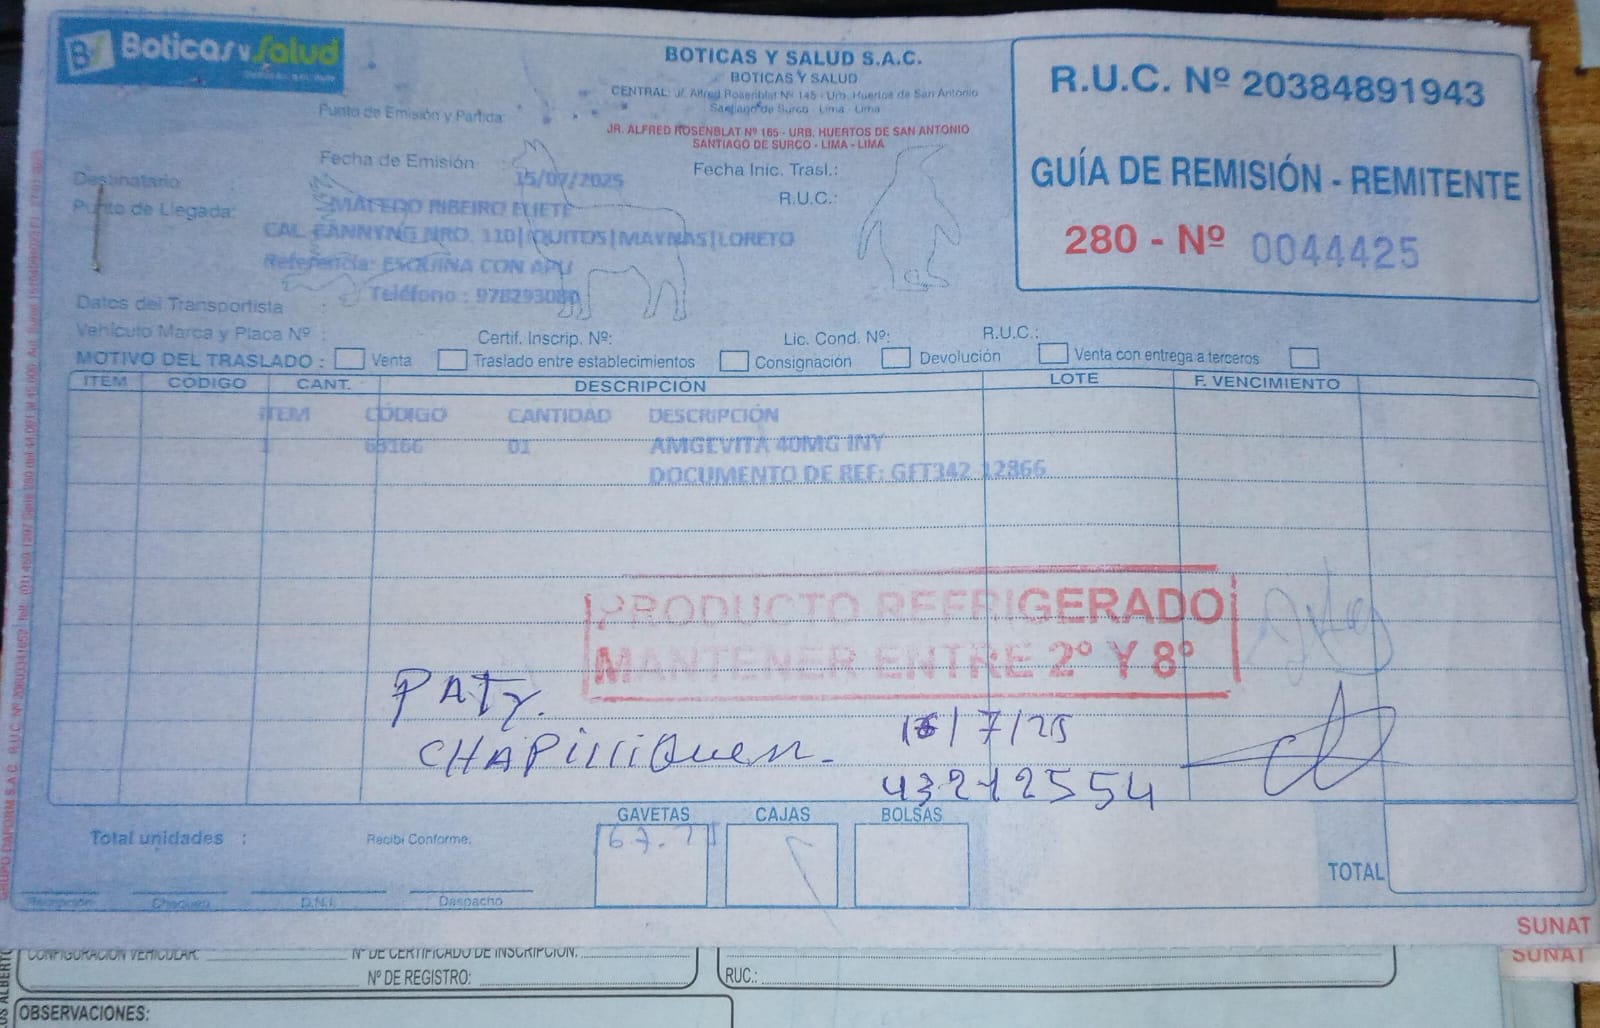 Boticas y Salud
BOTICAS Y SALUD S.A.C.
BOTICAS Y SALUD
CENTRAL: Jr. Alfred Rosenblat Nº 145 - Urb. Huertos de San Antonio
Santiago de Surco - Lima - Lima
Punto de Emisión y Partida:
JR. ALFRED ROSENBLAT Nº 165 - URB. HUERTOS DE SAN ANTONIO
SANTIAGO DE SURCO - LIMA - LIMA
R.U.C. Nº 20384891943
GUÍA DE REMISIÓN - REMITENTE
280 - Nº 0044425
Fecha de Emisión
15/07/2025
Fecha Inic. Trasl.:
Destinatario
MACEDO RIBEIRO ELIETE
R.U.C.:
Punto de Llegada:
CAL. FANNYNG NRO. 110|IQUITOS|MAYNAS|LORETO
Referencia: ESQUINA CON APU
Teléfono : 978293080
Datos del Transportista :
Vehículo Marca y Placa Nº :
Certif. Inscrip. Nº:
Lic. Cond. Nº:
R.U.C.:
MOTIVO DEL TRASLADO : Venta Traslado entre establecimientos Consignación Devolución Venta con entrega a terceros
ITEM CÓDIGO CANT. DESCRIPCIÓN LOTE F. VENCIMIENTO
ITEM CÓDIGO CANTIDAD DESCRIPCIÓN
1 65166 01 AMGEVITA 40MG INY
DOCUMENTO DE REF: GFT342 12866
PRODUCTO REFRIGERADO
MANTENER ENTRE 2º Y 8º
PATY.
CHAPilliQuen.
16/7/25
43212554
GAVETAS CAJAS BOLSAS
Total unidades :
Recibí Conforme.
TOTAL
Recepción Chequeo D.N.I. Despacho
SUNAT
SUNAT
CONFIGURACIÓN VEHICULAR:
Nº DE CERTIFICADO DE INSCRIPCIÓN:
Nº DE REGISTRO:
RUC.:
OBSERVACIONES: